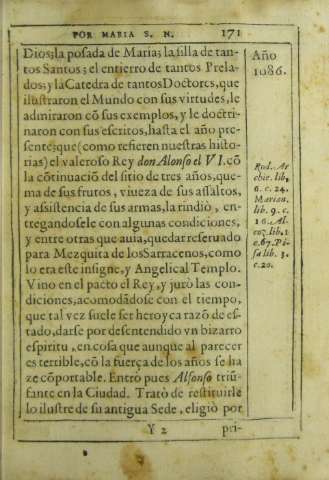 POR MARIA S. N. 171
Dios; la posada de Maria; la silla de tan-
tos Santos; el entierro de tantos Prela-
dos; y la Catedra de tantos Doctores, que
ilustraron el Mundo con sus virtudes, le
admiraron cõ sus exemplos, y le doctri-
naron con sus escritos, hasta el año pre-
sente; que (como refieren nuestras histo-
rias) el valeroso Rey don Alonso el VI. cõ
la cõtinuaciõ del sitio de tres años, que-
ma de sus frutos, viueza de sus assaltos,
y assistencia de sus armas, la rindiò, en-
tregandosele con algunas condiciones,
y entre otras que auia, quedar reseruado
para Mezquita de los Sarracenos, como
lo era este insigne, y Angelical Templo.
Vino en el pacto el Rey, y jurò las con-
diciones, acomodãdose con el tiempo,
que tal vez suele ser heroyca razõ de es-
tado, darse por desentendido vn bizarro
espiritu, en cosa que aunque al parecer
es terrible, cõ la fuerça de los años se ha
ze cõportable. Entrò pues Alfonso triũ-
fante en la Ciudad. Tratò de restituirle
lo ilustre de su antigua Sede, eligiò por
Y 2 pri-
Año
1086.
Rod. Ar
chie. lib.
6. c. 24.
Marian.
lib. 9. c.
16. Al-
coz. lib. 1
c. 67. Pi-
sa lib. 3.
c. 20.